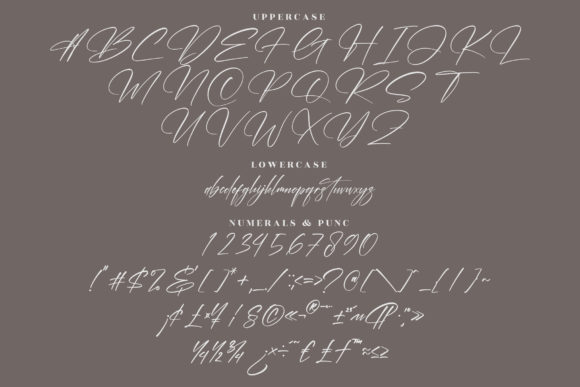 UPPERCASE
ABCDEFGHIJKL
MNOPQRST
UVWXYZ
LOWERCASE
abcdefghijklmnopqrstuvwxyz
NUMERALS & PUNC
1234567890
("#$%&'[]*+,-./:;<=>?@[\]^_{|}~
¡¢£¥¦§©«¬®¯°±²³´µ¶·¸¹º»
¼½¾¿×÷€₤ƒ™≈≤≥